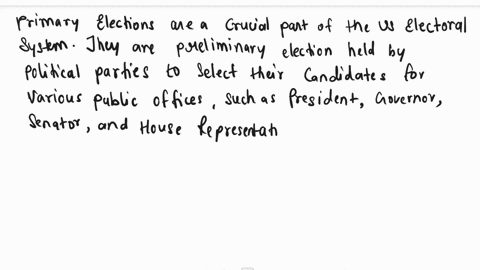 Primary Elections are a Crucial part of the US Electoral
System. They are preliminary election held by
Political parties to Select their Candidates for
Various public offices, such as President, Governor,
Senator, and House Representati